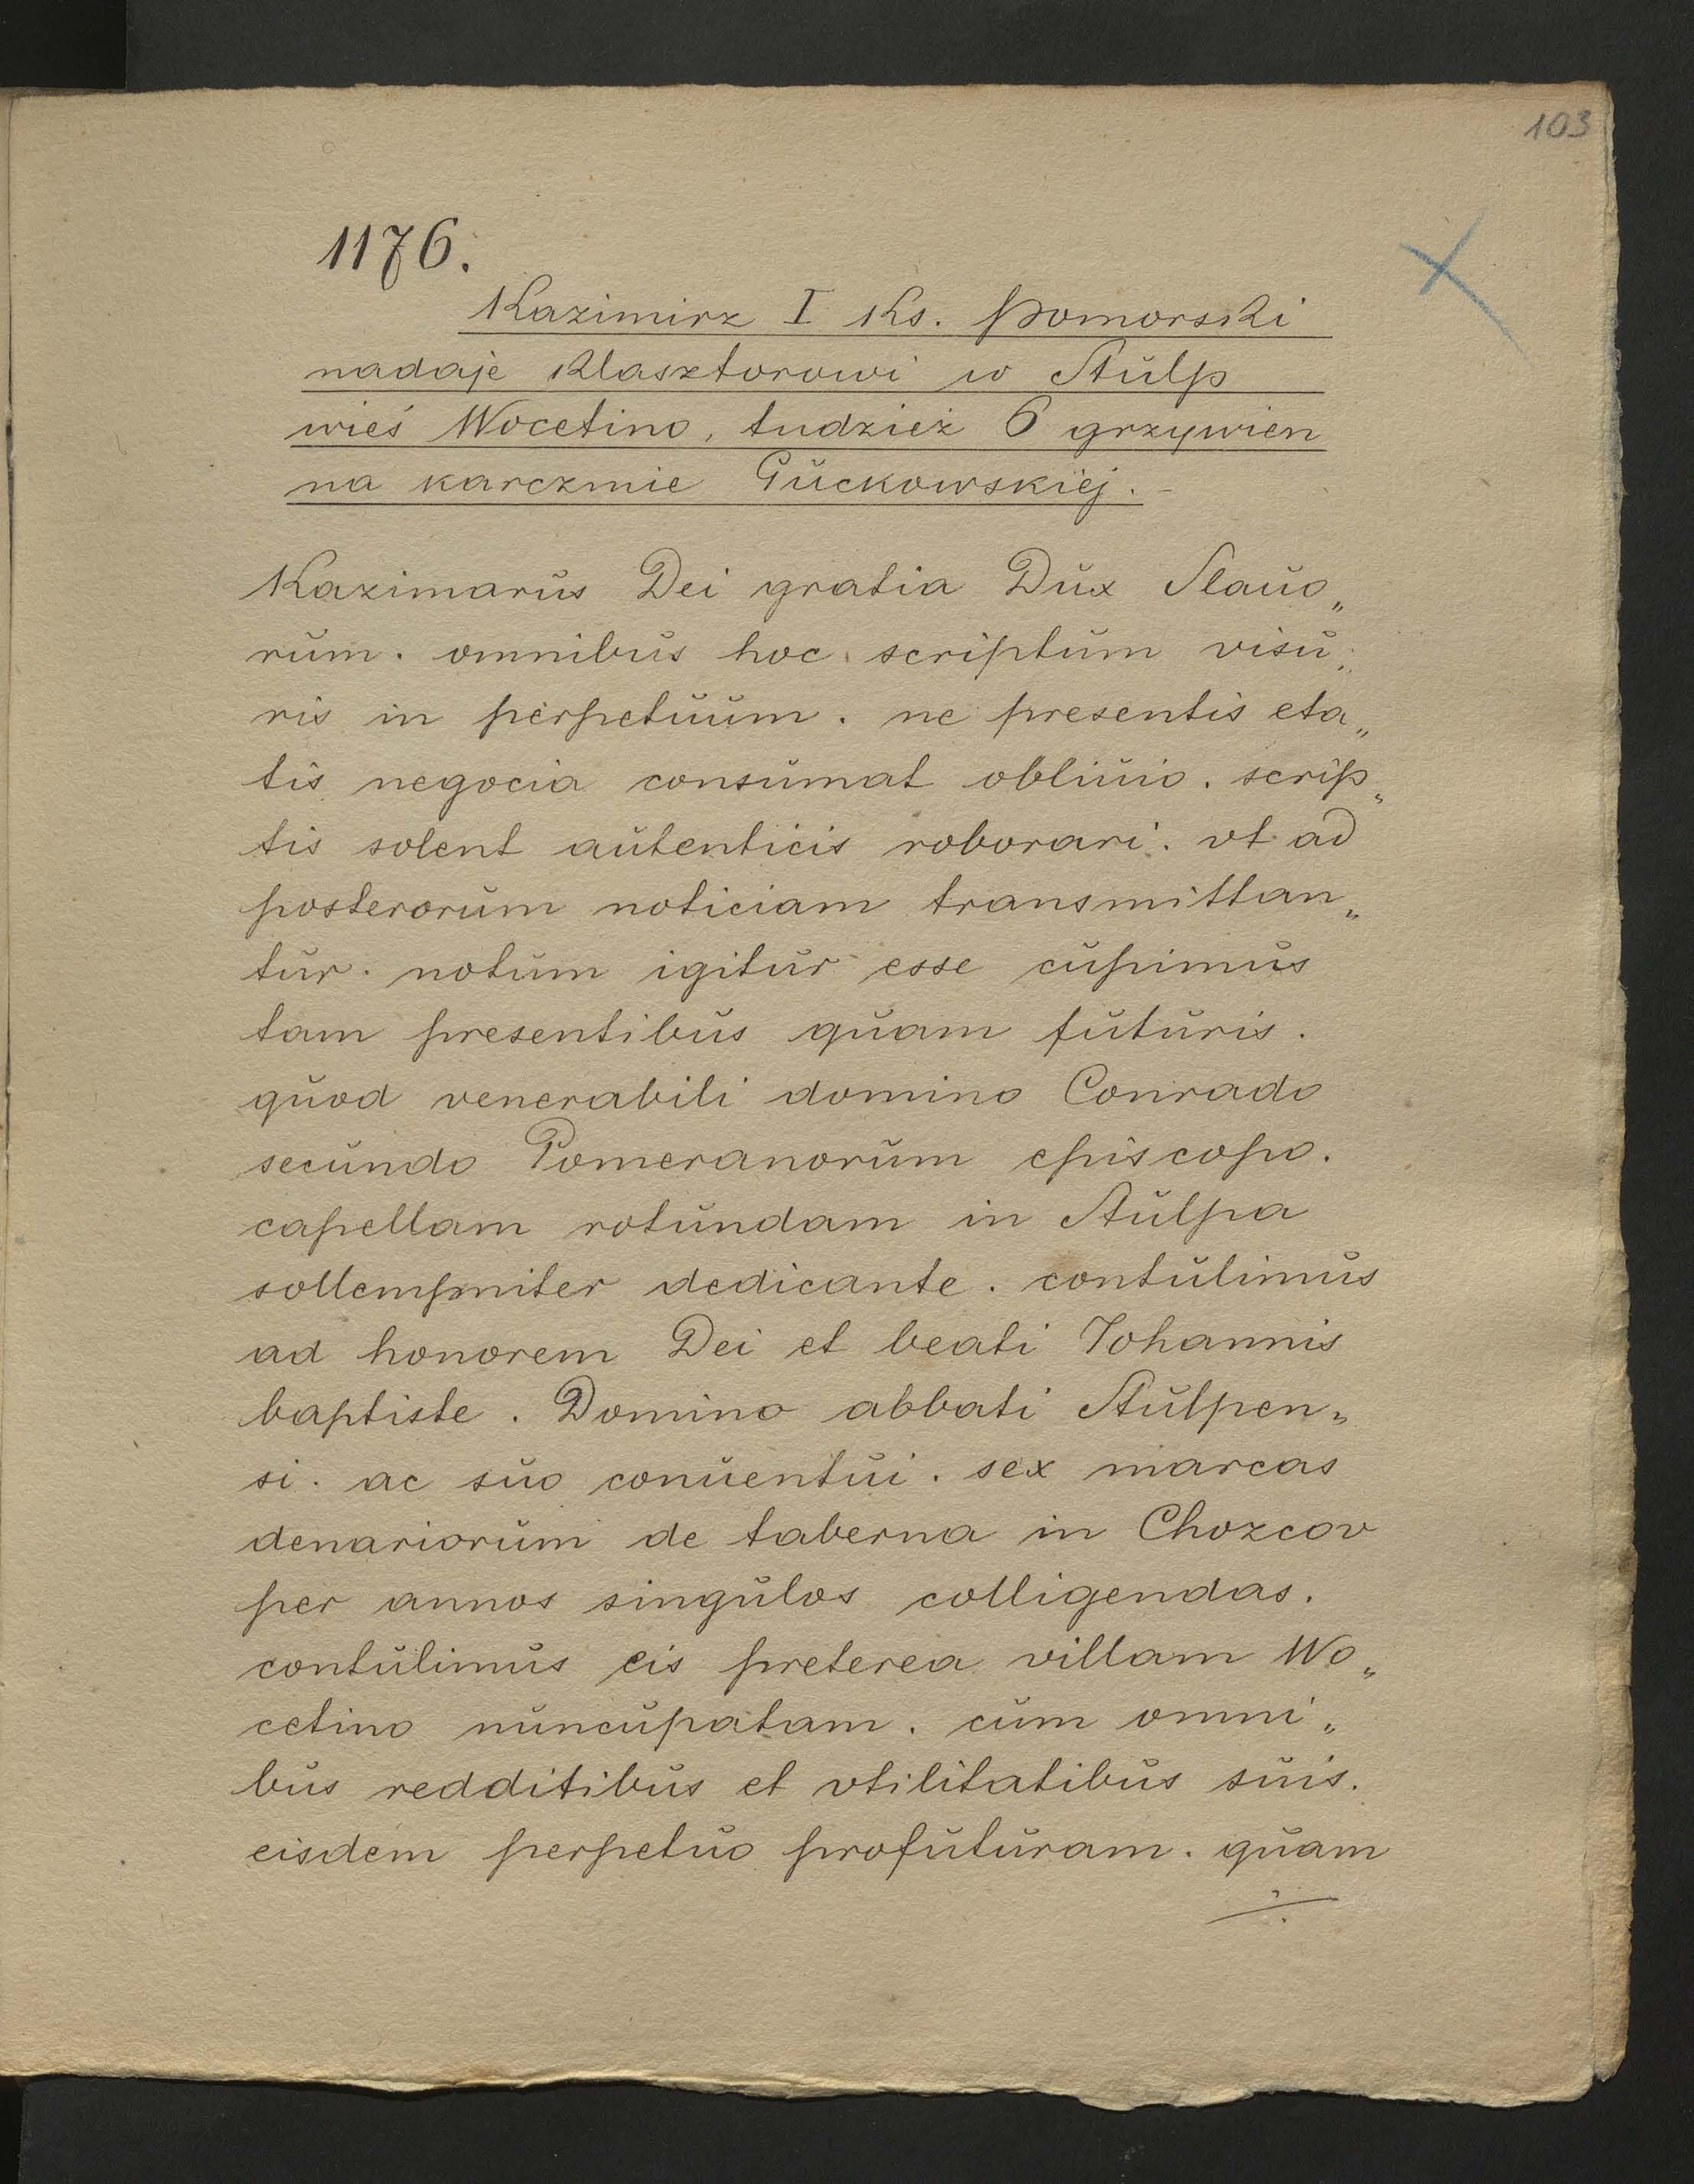 103
1176.
Kazimirz I Ks. Pomorski
nadaje Klasztorowi w Stulp
wieś Wocetino, tudzież 6 grzywien
na karczmie Guckowskiej. -
Kazimarus Dei gratia Dux Slauo„
rum. omnibus hoc scriptum visu„
ris in perpetuum. ne presentis eta„
tis negocia consumat obliuio. scrip„
tis solent autenticis roborari. vt ad
posterorum noticiam transmittan„
tur. notum igitur esse cupimus
tam presentibus quam futuris.
quod venerabili domino Conrado
secundo Pomeranorum episcopo.
capellam rotundam in Stulpa
sollempniter dedicante. contulimus
ad honorem Dei et beati Johannis
baptiste. Domino abbati Stulpen„
si. ac suo conuentui. sex marcas
denariorum de taberna in Chozcov
per annos singulos colligendas.
contulimus eis preterea villam Wo„
cetino nuncupatam. cum omni„
bus redditibus et vtilitatibus suis.
eisdem perpetuo profuturam. quam